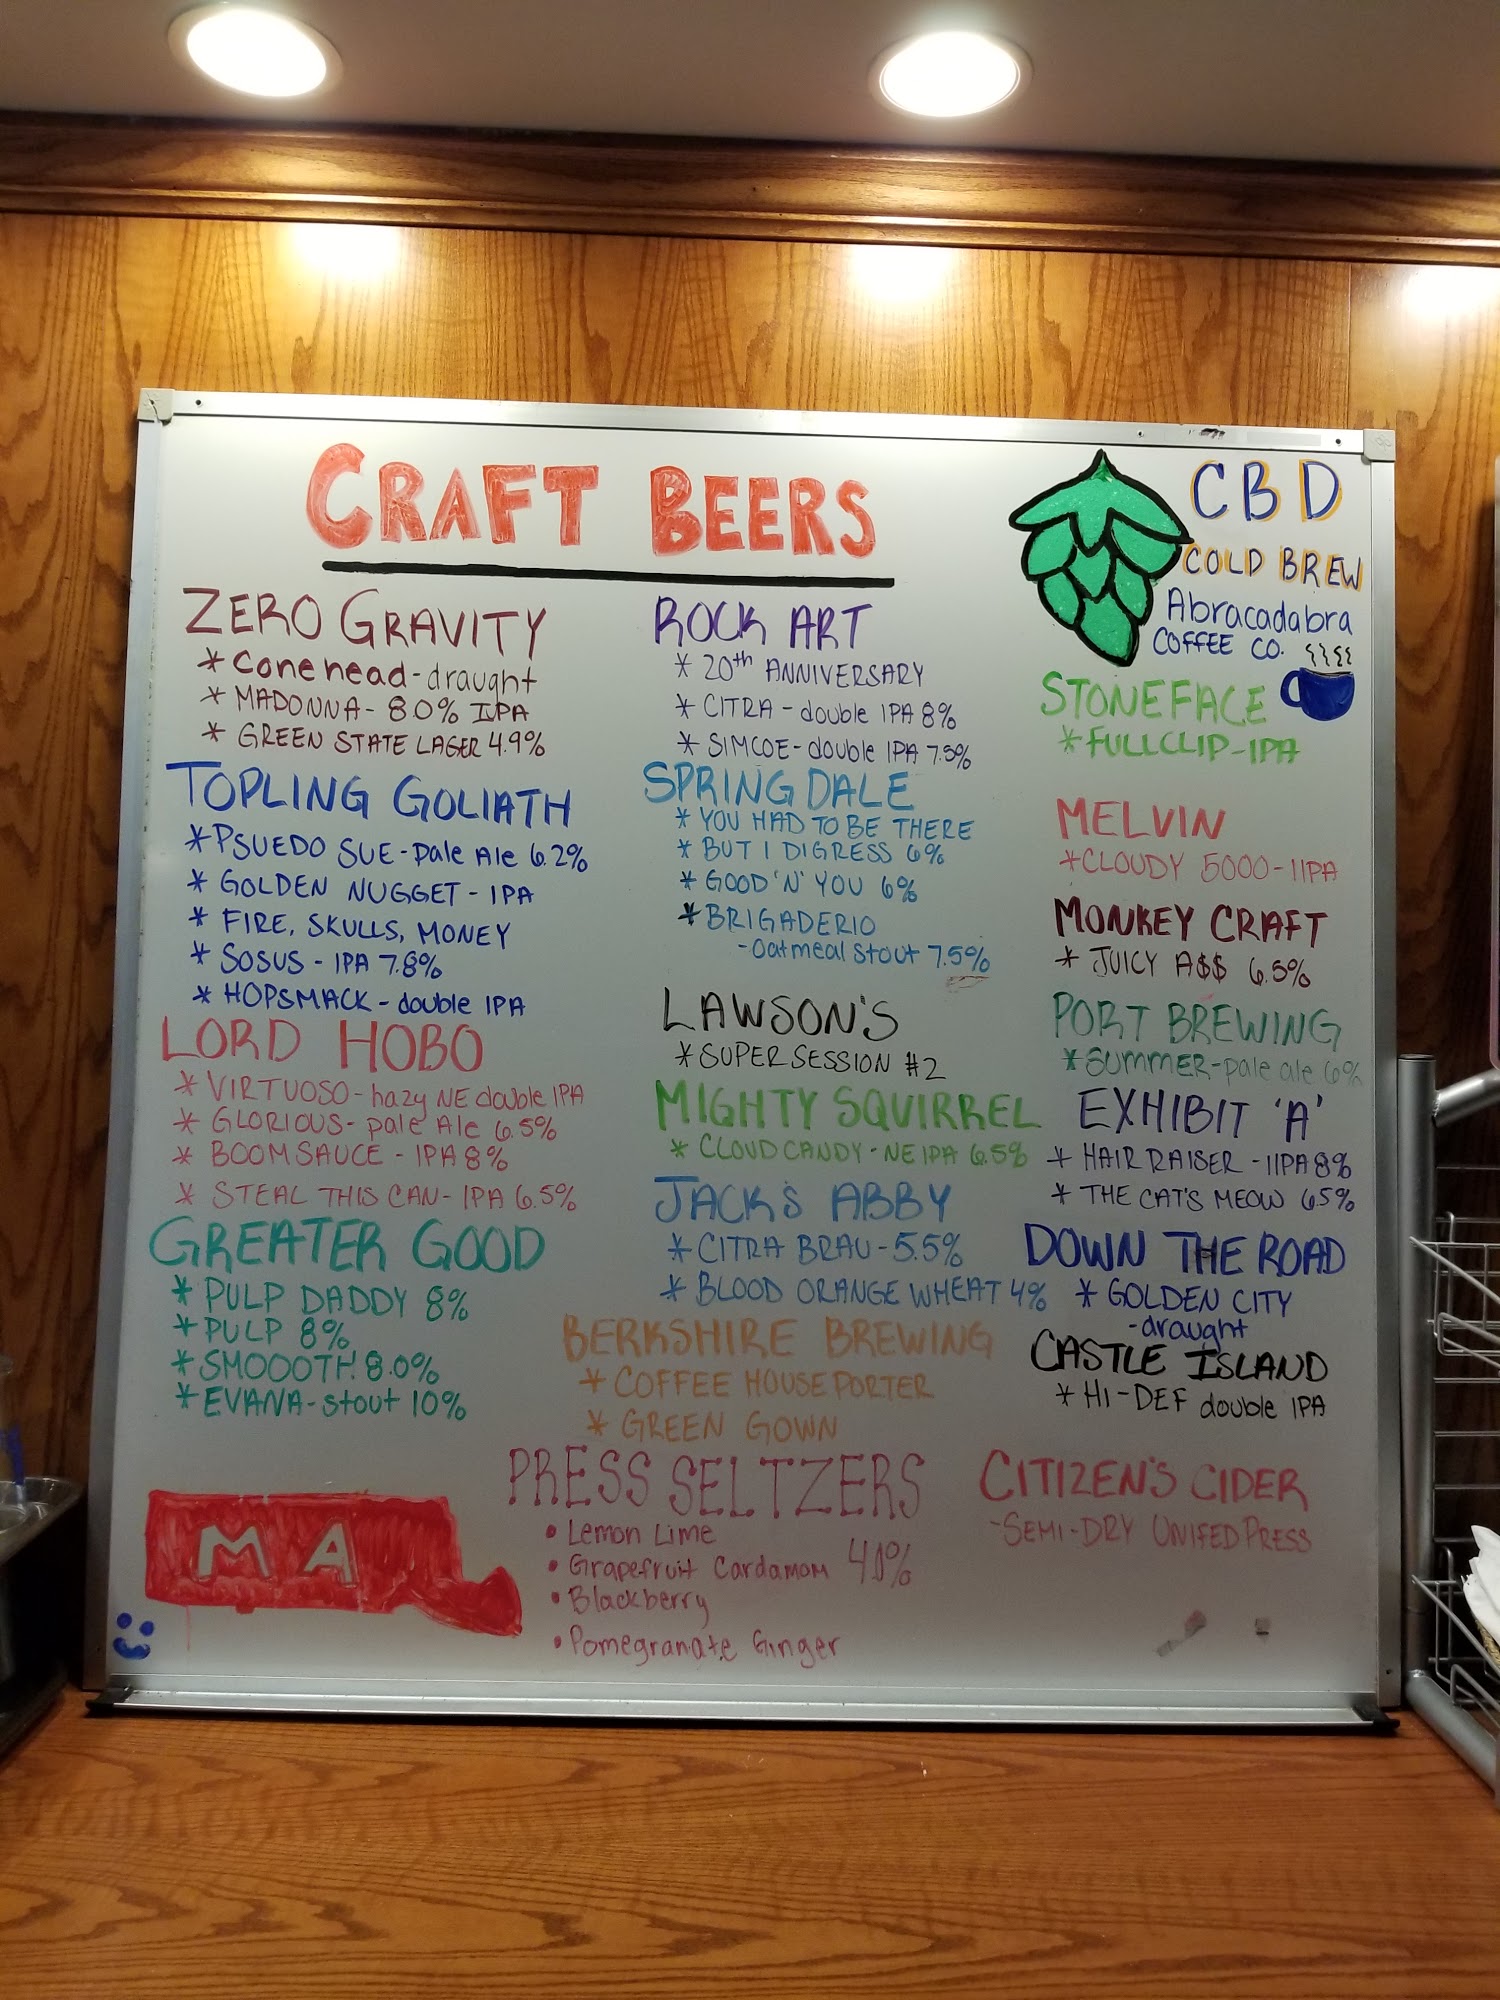 CRAFT BEERS
ZERO GRAVITY
* Conehead - draught
* MADONNA - 8.0% IPA
* GREEN STATE LAGER 4.9%
TOPLING GOLIATH
* PSUEDO SUE - pale Ale 6.2%
* GOLDEN NUGGET - IPA
* FIRE, SKULLS, MONEY
* SOSUS - IPA 7.8%
* HOPSMACK - double IPA
LORD HOBO
* VIRTUOSO - hazy NE double IPA
* GLORIOUS - pale Ale 6.5%
* BOOMSAUCE - IPA 8%
* STEAL THIS CAN - IPA 6.5%
GREATER GOOD
* PULP DADDY 8%
* PULP 8%
* SMOOOTH 8.0%
* EVANA - stout 10%
MA
ROCK ART
* 20th ANNIVERSARY
* CITRA - double IPA 8%
* SIMCOE - double IPA 7.5%
SPRINGDALE
* YOU HAD TO BE THERE
* BUT I DIGRESS 6%
* GOOD 'N' YOU 6%
* BRIGADERIO
- oatmeal stout 7.5%
LAWSON'S
* SUPER SESSION #2
MIGHTY SQUIRREL
* CLOUD CANDY - NE IPA 6.5%
JACK'S ABBY
* CITRA BRAU - 5.5%
* BLOOD ORANGE WHEAT 4%
BERKSHIRE BREWING
* COFFEE HOUSE PORTER
* GREEN GOWN
PRESS SELTZERS
• Lemon Lime
• Grapefruit Cardamom 4.0%
• Blackberry
• Pomegranate Ginger
CBD
COLD BREW
Abracadabra
COFFEE CO.
STONEFACE
* FULLCLIP - IPA
MELVIN
* CLOUDY 5000 - IIPA
MONKEY CRAFT
* JUICY A$$ 6.5%
PORT BREWING
* SUMMER - pale ale 6%
EXHIBIT 'A'
* HAIR RAISER - IIPA 8%
* THE CAT'S MEOW 6.5%
DOWN THE ROAD
* GOLDEN CITY
- draught
CASTLE ISLAND
* HI-DEF double IPA
CITIZEN'S CIDER
- SEMI-DRY UNIFED PRESS